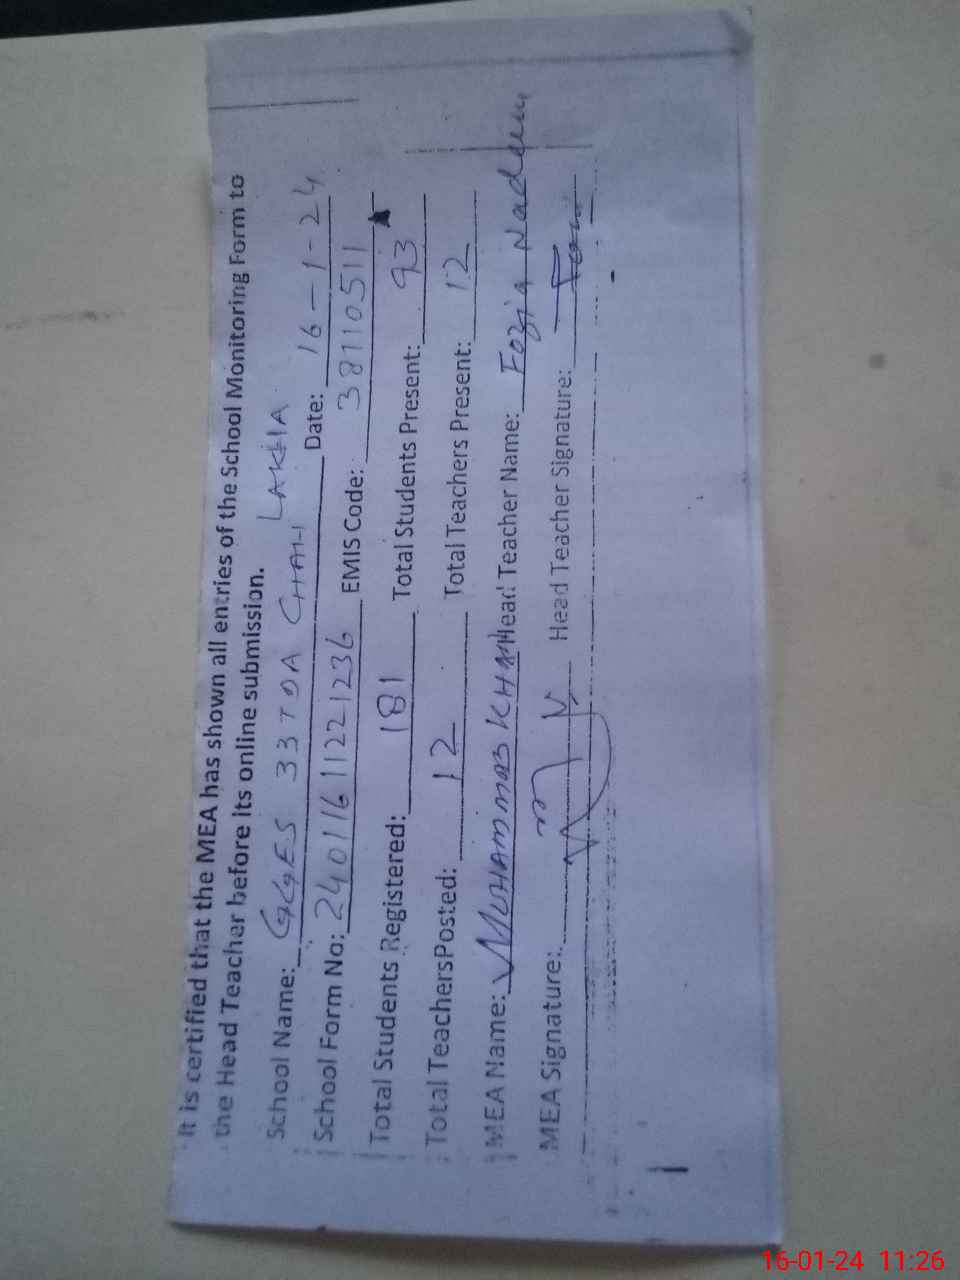 It is certified that the MEA has shown all entries of the School Monitoring Form to
the Head Teacher before its online submission.
School Name: GGES 33 TDA CHAH LAKHA Date: 16-1-24
School Form No: 2401161122 1236 EMIS Code: 38110511
Total Students Registered: 181 Total Students Present: 93
Total TeachersPosted: 12 Total Teachers Present: 12
MEA Name: MUHAMMAD KHAN Head Teacher Name: Fozia Nadeem
MEA Signature: Head Teacher Signature:
16-01-24 11:26